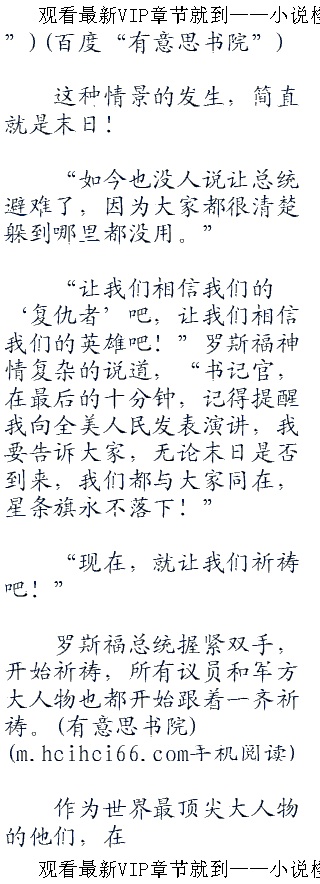 观看最新VIP章节就到——小说
”)(百度“有意思书院”)
这种情景的发生，简直
就是末日！
“如今也没人说让总统
避难了，因为大家都很清楚
躲到哪里都没用。”
“让我们相信我们的
‘复仇者’吧，让我们相信
我们的英雄吧！”罗斯福神
情复杂的说道，“书记官，
在最后的十分钟，记得提醒
我向全美人民发表演讲，我
要告诉大家，无论末日是否
到来，我们都与大家同在，
星条旗永不落下！”
“现在，就让我们祈祷
吧！”
罗斯福总统握紧双手，
开始祈祷，所有议员和军方
大人物也都开始跟着一齐祈
祷。(有意思书院)
(m.hcihci66.com手机阅读)
作为世界最顶尖大人物
的他们，在
观看最新VIP章节就到——小说